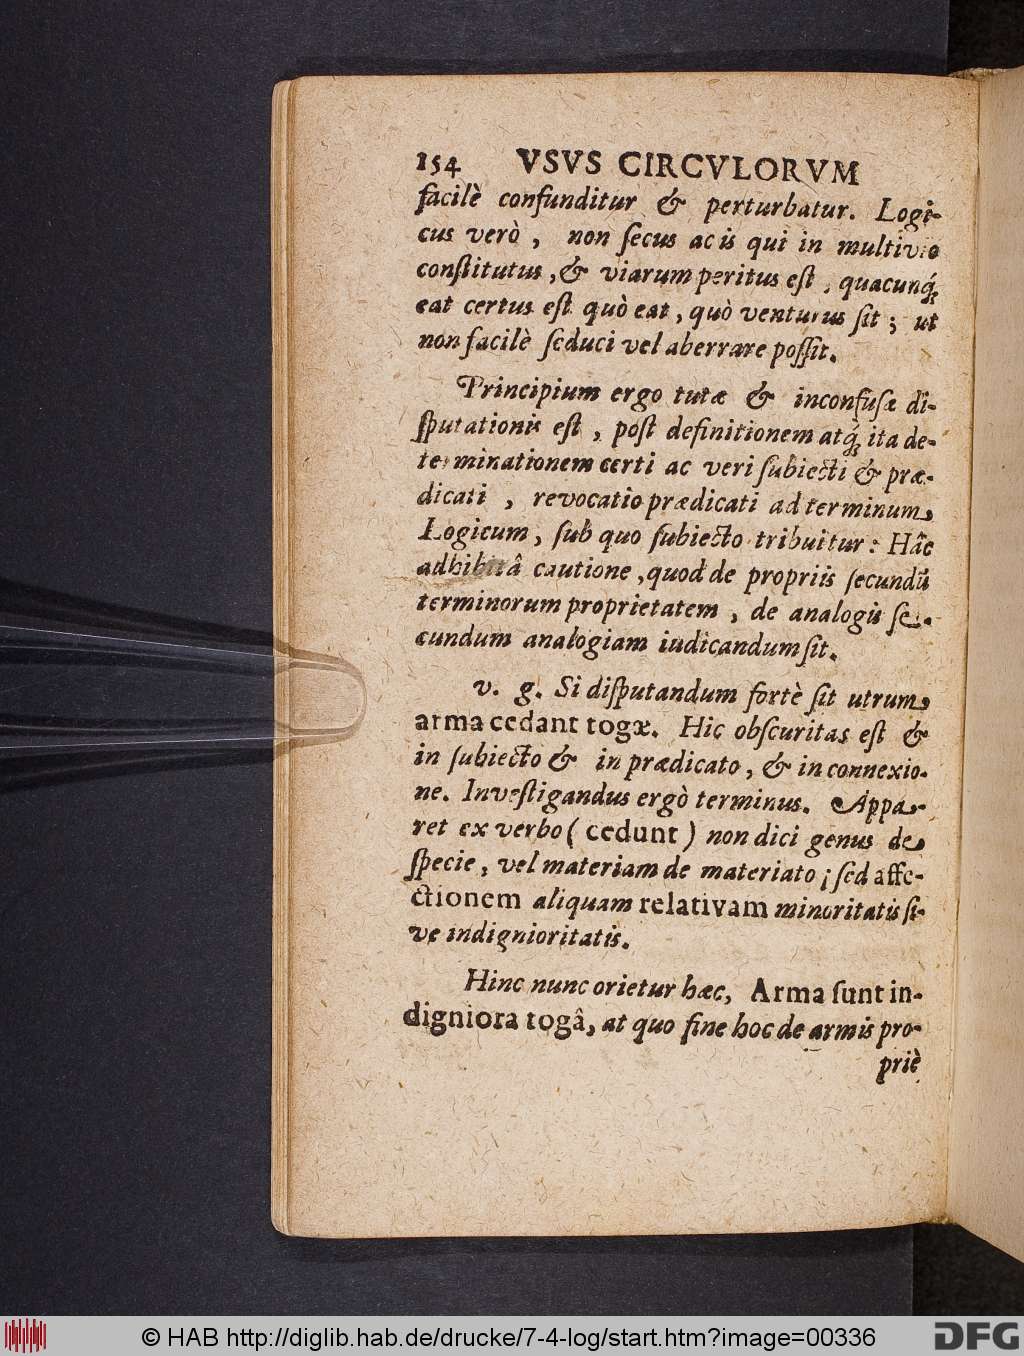 154 VSVS CIRCVLORVM
facilè confunditur & perturbatur. Logi-
cus verò, non ſecus ac is qui in multivio
conſtitutus, & viarum peritus eſt, quacunq́;
eat certus eſt quò eat, quò venturus ſit; ut
non facilè ſeduci vel aberrare poſſit.
Principium ergo tutæ & inconfuſæ di-
ſputationis eſt, poſt definitionem atq́; ita de-
terminationem certi ac veri ſubiecti & præ-
dicati, revocatio prædicati ad terminum
Logicum, ſub quo ſubiecto tribuitur: Hâc
adhibitâ cautione, quod de propriis ſecundũ
terminorum proprietatem, de analogis ſe-
cundum analogiam iudicandum ſit.
v. g. Si diſputandum fortè ſit utrum
arma cedant togæ. Hic obſcuritas eſt &
in ſubiecto & in prædicato, & in connexio-
ne. Inveſtigandus ergò terminus. Appa-
ret ex verbo (cedunt) non dici genus de
ſpecie, vel materiam de materiato; ſed affe-
ctionem aliquam relativam minoritatis ſi-
ve indignioritatis.
Hinc nunc orietur hæc, Arma ſunt in-
digniora togâ, at quo fine hoc de armis pro-
priè
© HAB http://diglib.hab.de/drucke/7-4-log/start.htm?image=00336
DFG